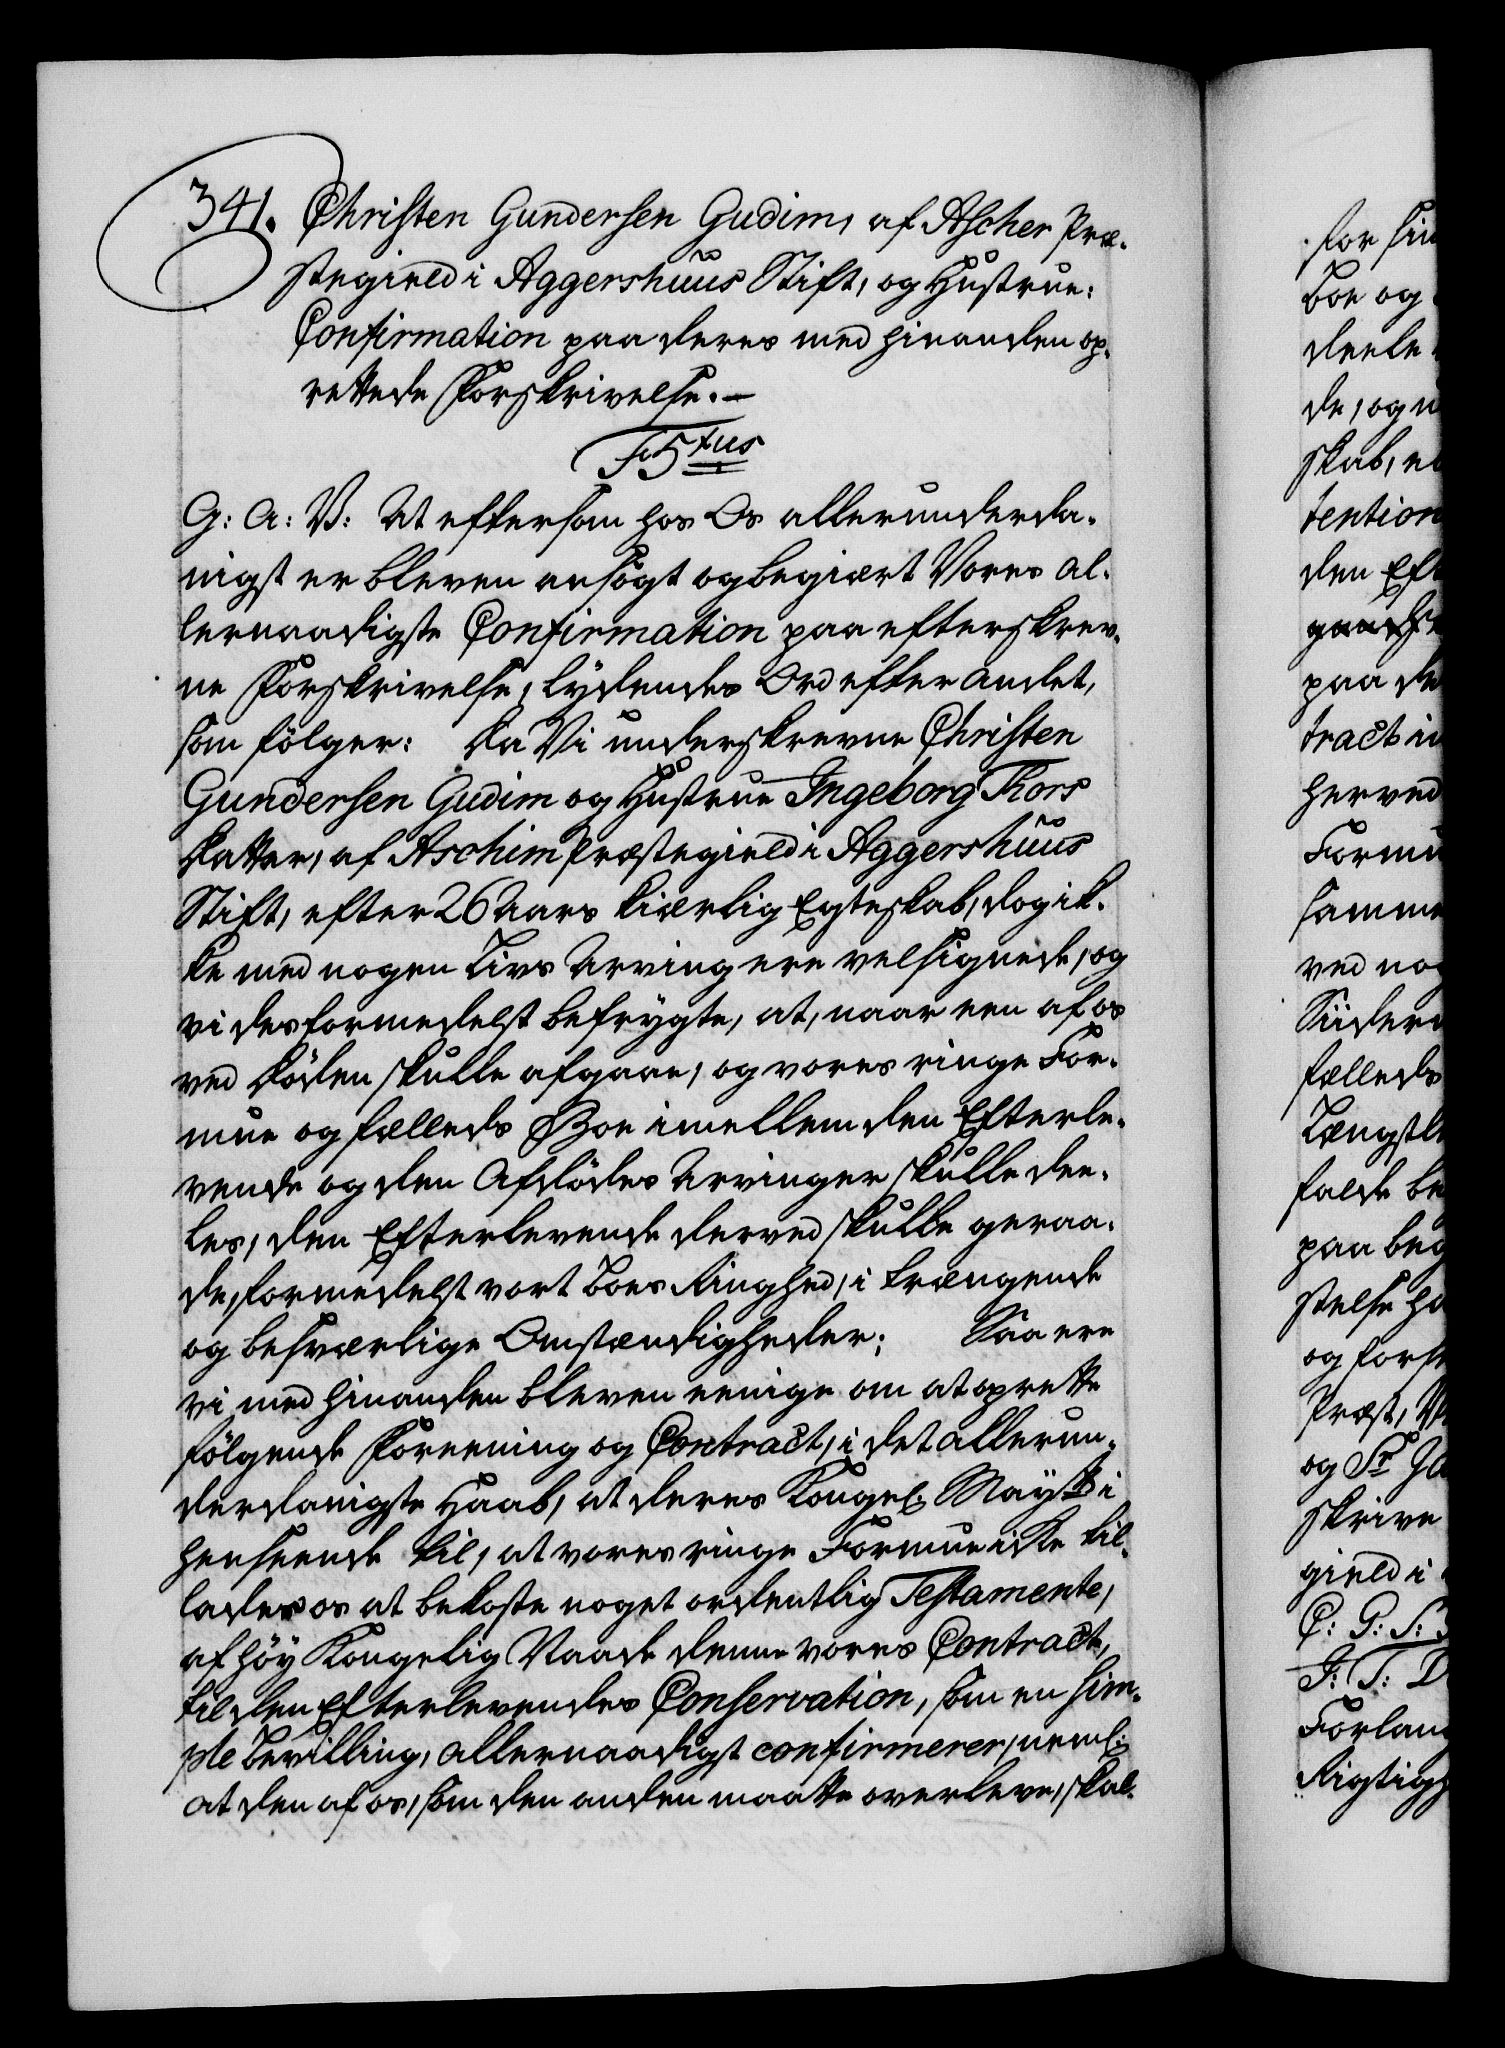 341. Christen Gundersen Gudim, af Ascher Præ-
stegield i Aggershuus Stift, og Hustrue:
Confirmation paa deres med hinanden op-
rettede Forskrivelse. —
F5tus
G: A: V: At eftersom hos Os allerunderda-
nigst er bleven ansøgt og begiært Vores al-
lernaadigste Confirmation paa efterskrev-
ne Forskrivelse, lydendes Ord efter andet,
som fölger: Da Vi underskrevne Christen
Gundersen Gudim og Hustrue Ingeborg Thors
Datter, af Aschim Præstegield i Aggershuus
Stift, efter 26 Aars kiærlig Egteskab, dog ik-
ke med nogen Livs Arving ere velsignede, og
vi desformedelst befrygte, at, naar een af os
ved Döden skulle afgaae, og vores ringe For-
mue og fælleds Boe imellem den Efterle-
vende og den Afdödes Arvinger skulle dee-
les, den Efterlevende derved skulle geraa-
de, formedelst vort Boes Ringhed, i trængende
og besværlige Omstændigheder; Saa ere
vi med hinanden bleven eenige om at oprette
fölgende Foreening og Contract, i det allerun-
derdanigste Haab, at deres Kongel: Mayts i
henseende til, at vores ringe Formue icke til-
lader os at bekoste noget ordentlig Testamente,
af höy Kongelig Naade denne vores Contract,
til den Efterlevendes Conservation, som en sim-
ple Bevilling, allernaadigst confirmerer, neml:
at den af os, som den anden maatte overleve, skal
for sin
Boe og
deele
de, og u
skab, e
tention
den Eft
paa de
tract i
herved
Formu
samme
ved nog
Süder
fælleds
Længstl
falde be
paa beg
stelse ha
og forse
Præst,
og Sr
skrive
gield i
C: G: S:
I: T: D
Forlang
Rigtigh